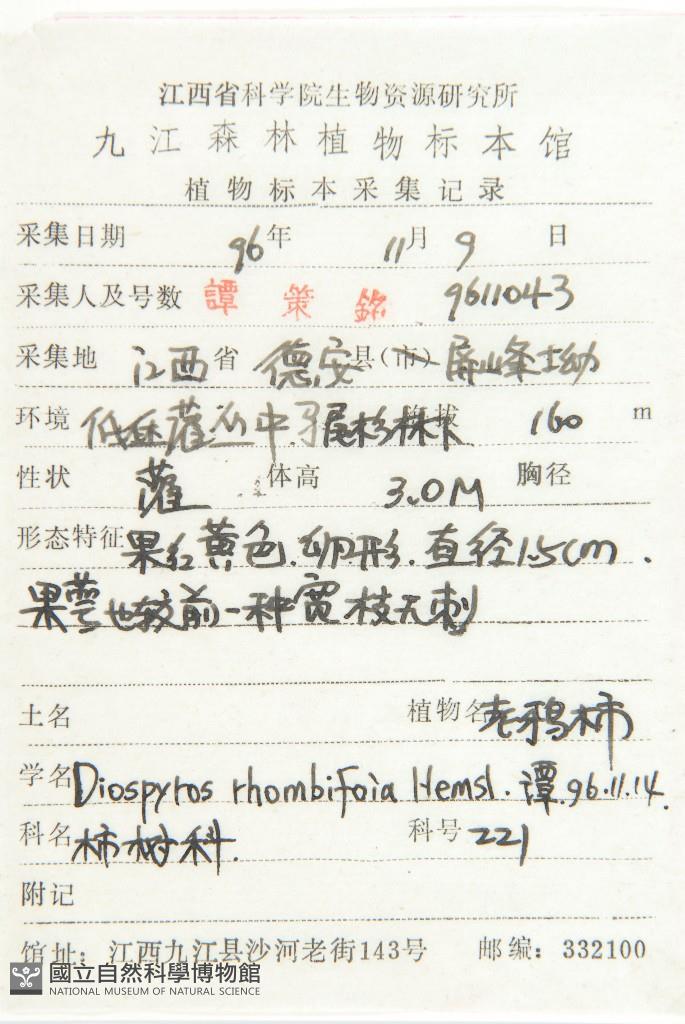 江西省科学院生物资源研究所
九江森林植物标本馆
植物标本采集记录
采集日期 96年 11月 9 日
采集人及号数 譚策銘 9611043
采集地 江西省 德安县(市) 屏山峰土坳
环境 低丘灌丛中. 尾杉林下 海拔 160 m
性状 灌 体高 3.0M 胸径
形态特征 果红黄色.卵形.直径1.5cm.
果萼也较前一种宽 枝无刺
土名 植物名 老鸦柿
学名 Diospyros rhombifoia Hemsl. 譚.96.11.14.
科名 柿树科. 科号 221
附记
馆址: 江西九江县沙河老街143号 邮编: 332100
國立自然科學博物館
NATIONAL MUSEUM OF NATURAL SCIENCE